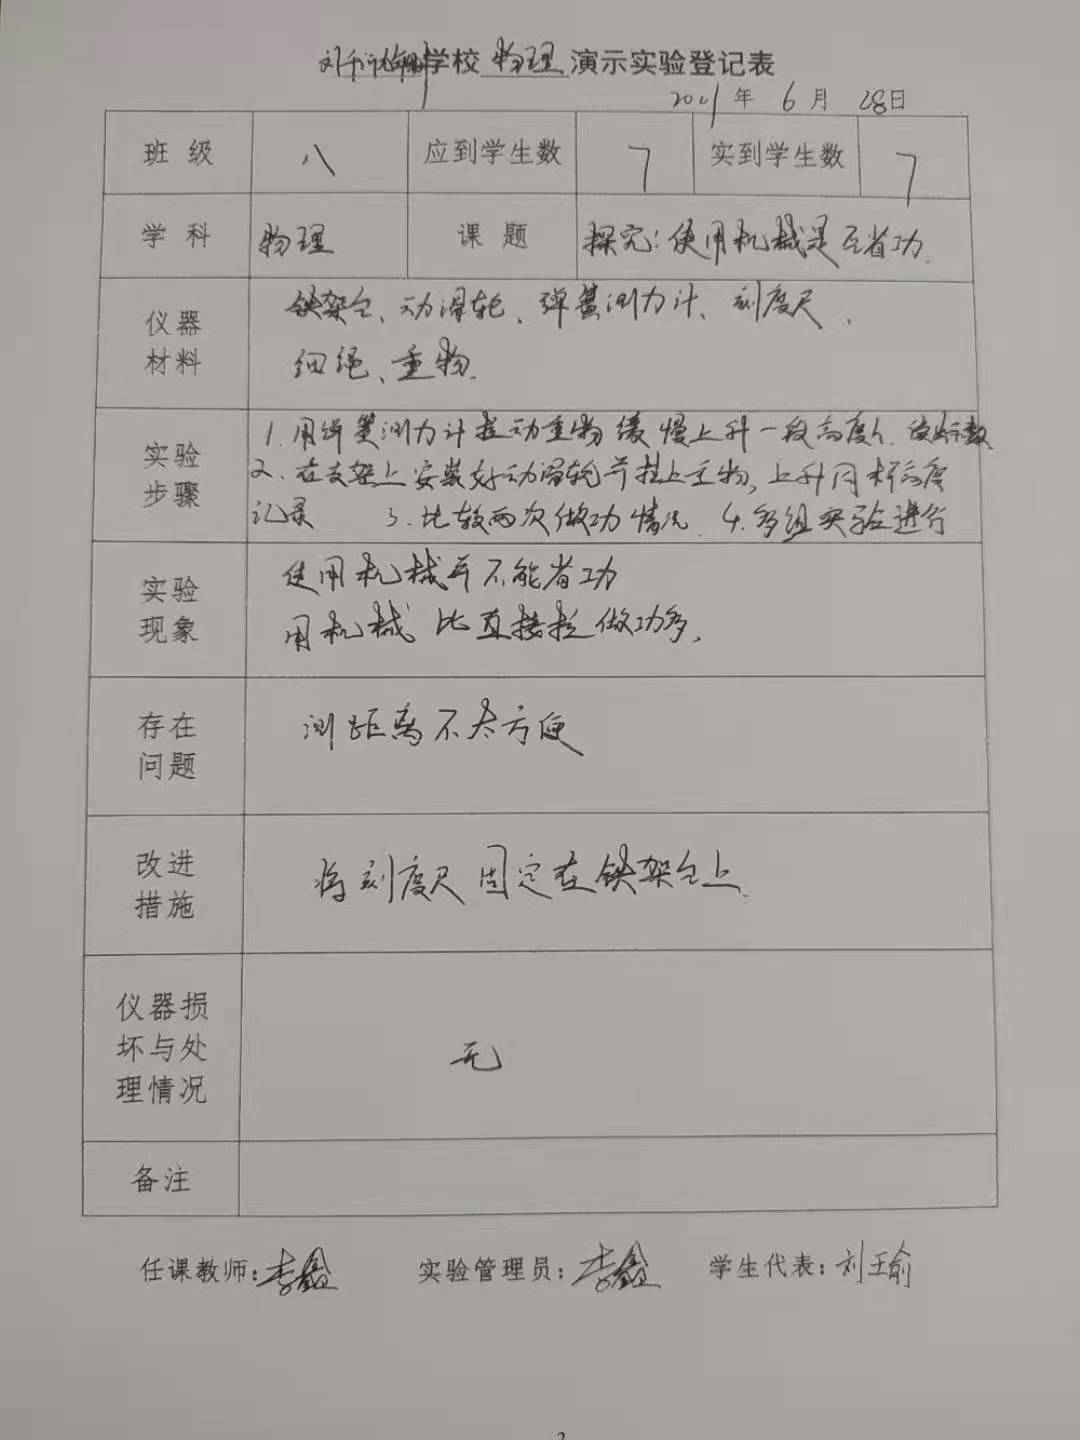 学校 物理 演示实验登记表
2021年 6月 28日
班级 八 应到学生数 7 实到学生数 7
学科 物理 课题 探究:使用机械是否省功.
仪器材料 铁架台、动滑轮、弹簧测力计、刻度尺、
细绳、重物.
实验步骤 1.用弹簧测力计拉动重物缓慢上升一段高度h.
2.在支架上安装好动滑轮并挂上重物,上升同样高度
记录 3.比较两次做功情况. 4.多组实验进行
实验现象 使用机械并不能省功
用机械 比直接拉做功多.
存在问题 测距离不太方便
改进措施 将刻度尺固定在铁架台上.
仪器损坏与处理情况 无
备注
任课教师:李鑫 实验管理员:李鑫 学生代表:刘王俞
2